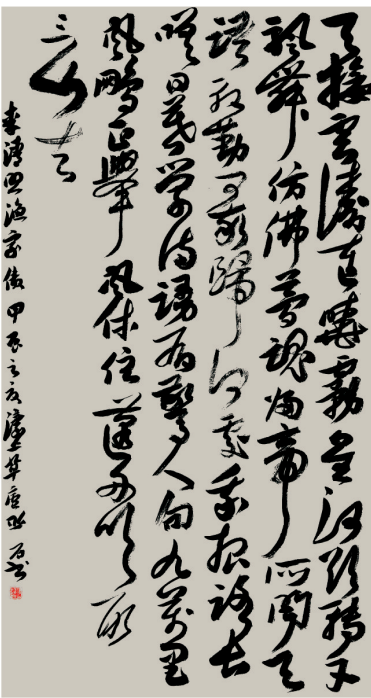 天接雲濤連曉霧星河欲轉千
帆舞仿佛夢魂歸帝所聞天
語殷勤問我歸何處我報路長
嗟日暮學詩謾有驚人句九萬里
風鵬正舉風休住蓬舟吹取
三山去
李清照漁家傲 甲辰之夏